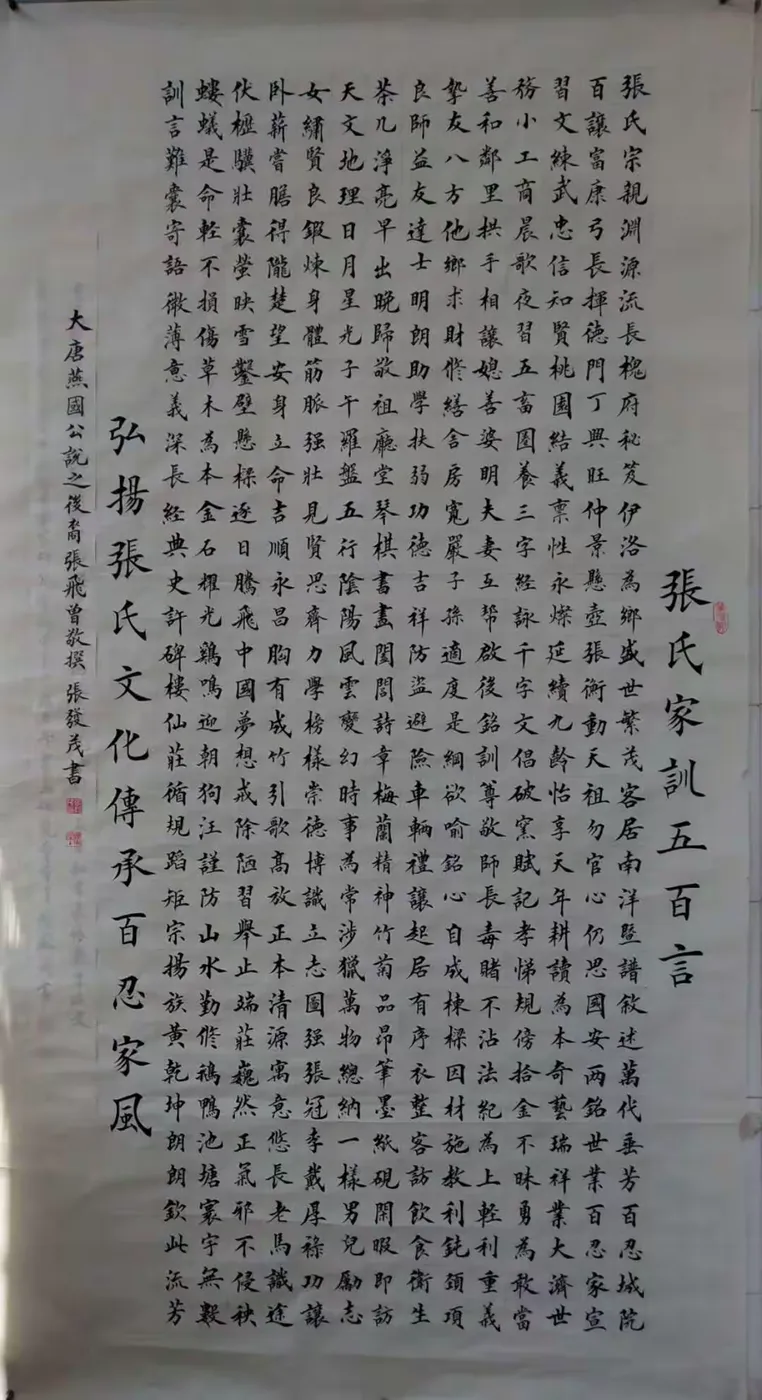 張氏家訓五百言
張氏宗親淵源流長槐府秘笈伊洛為鄉盛世繁茂客居南洋暨譜敘述萬代垂芳百忍城院
百讓富康弓長揮德門丁興旺仲景懸壺張衡動天祖勿官心仍思國安兩銘世業百忍家宣
習文練武忠信知賢桃園結義稟性永燦延續九齡怡享天年耕讀為本奇藝瑞祥業大濟世
務小工商晨歌夜習五畜圈養三字經詠千字文倡破窯賦記孝悌規傍拾金不昧勇為敢當
善和鄰里拱手相讓媳善婆明夫妻互幫啟後銘訓尊敬師長毒賭不沾法紀為上輕利重義
摯友八方他鄉求財修繕舍房寬嚴子孫適度是綱欲喻銘心自成棟樑因材施教利鈍頸項
良師益友達士明朗助學扶弱功德吉祥防盜避險車輛禮讓起居有序衣整客訪飲食衛生
茶几淨亮早出晚歸敬祖廳堂琴棋書畫閨閣詩章梅蘭精神竹菊品昂筆墨紙硯閑暇即訪
天文地理日月星光子午羅盤五行陰陽風雲變幻時事為常涉獵萬物總納一樣男兒勵志
女繡賢良鍛煉身體筋脈强壯見賢思齊力學榜樣崇德博識立志圖强張冠李戴厚祿功讓
卧薪嘗膽得隴楚望安身立命吉順永昌胸有成竹引歌高放正本清源寓意悠長老馬識途
伏櫪驥壯囊螢映雪鑿壁懸樑逐日騰飛中國夢想戒除陋習舉止端莊巍然正氣邪不侵袂
螻蟻是命輕不損傷草木為本金石耀光鷄鳴迎朝狗汪謹防山水勤修鵝鴨池塘寰宇無毅
訓言難囊寄語微薄意義深長經典史許碑樓仙莊循規蹈矩宗揚族黃乾坤朗朗欽此流芳
弘揚張氏文化傳承百忍家風
大唐燕國公說之後裔張飛曾敬撰 張發茂書